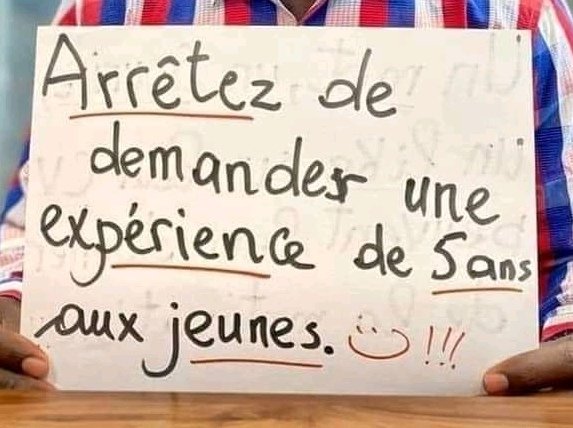 Arrêtez de
demander une
expérience de 5 ans
aux jeunes. :) !!!